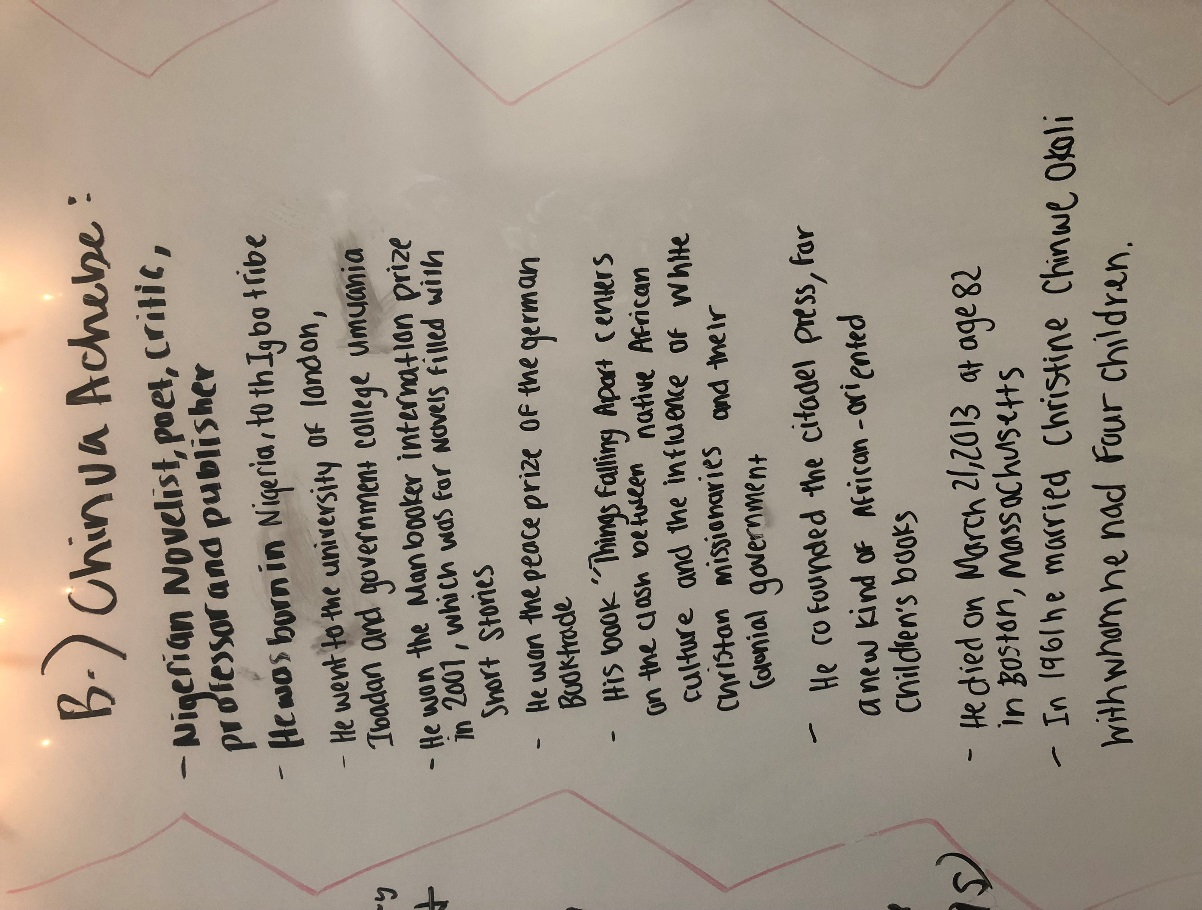 B.) Chinua Achebe:
- Nigerian Novelist, poet, critic,
professor and publisher
- He was born in Nigeria, to th Igbo tribe
- He went to the university of london,
Ibadan and government college umuahia
- He won the Man booker internation prize
in 2007, which was for Novels filled with
Short Stories
- He won the peace prize of the german
Booktrade
- His book "Things Falling Apart centers
on the clash between native African
culture and the influence of white
Christan missionaries and their
Colonial government
- He cofounded the citadel press, for
a new kind of African-oriented
Children's books
- He died on March 21, 2013 at age 82
in Boston, Massachusetts
- In 1961 he married Christine Chinwe Okoli
with whom he had Four Children.